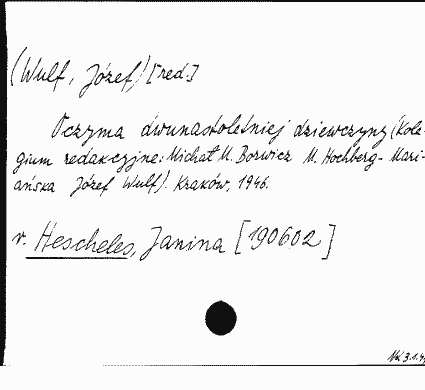 (Wulf, Józef) [red.]
Oczyma dwunastoletniej dziewczyny (Kole-
gium redakcyjne: Michał M. Borwicz M. Hochberg-Mari-
ańska Józef Wulf). Kraków, 1946.
v. Hescheles, Janina [190602]